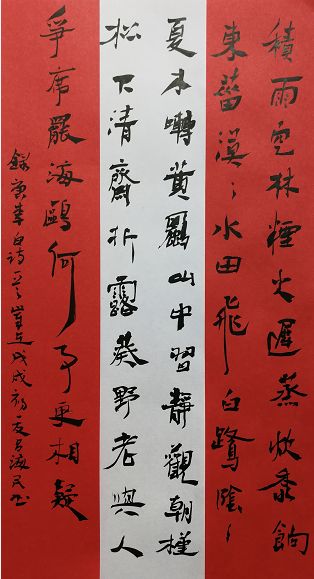 積雨空林煙火遲蒸炊黍餉
東菑漠〻水田飛白鷺陰〻
夏木囀黃鸝山中習靜觀朝槿
松下清齋折露葵野老與人
爭席罷海鷗何事更相疑
錄唐李白詩戊戌初書